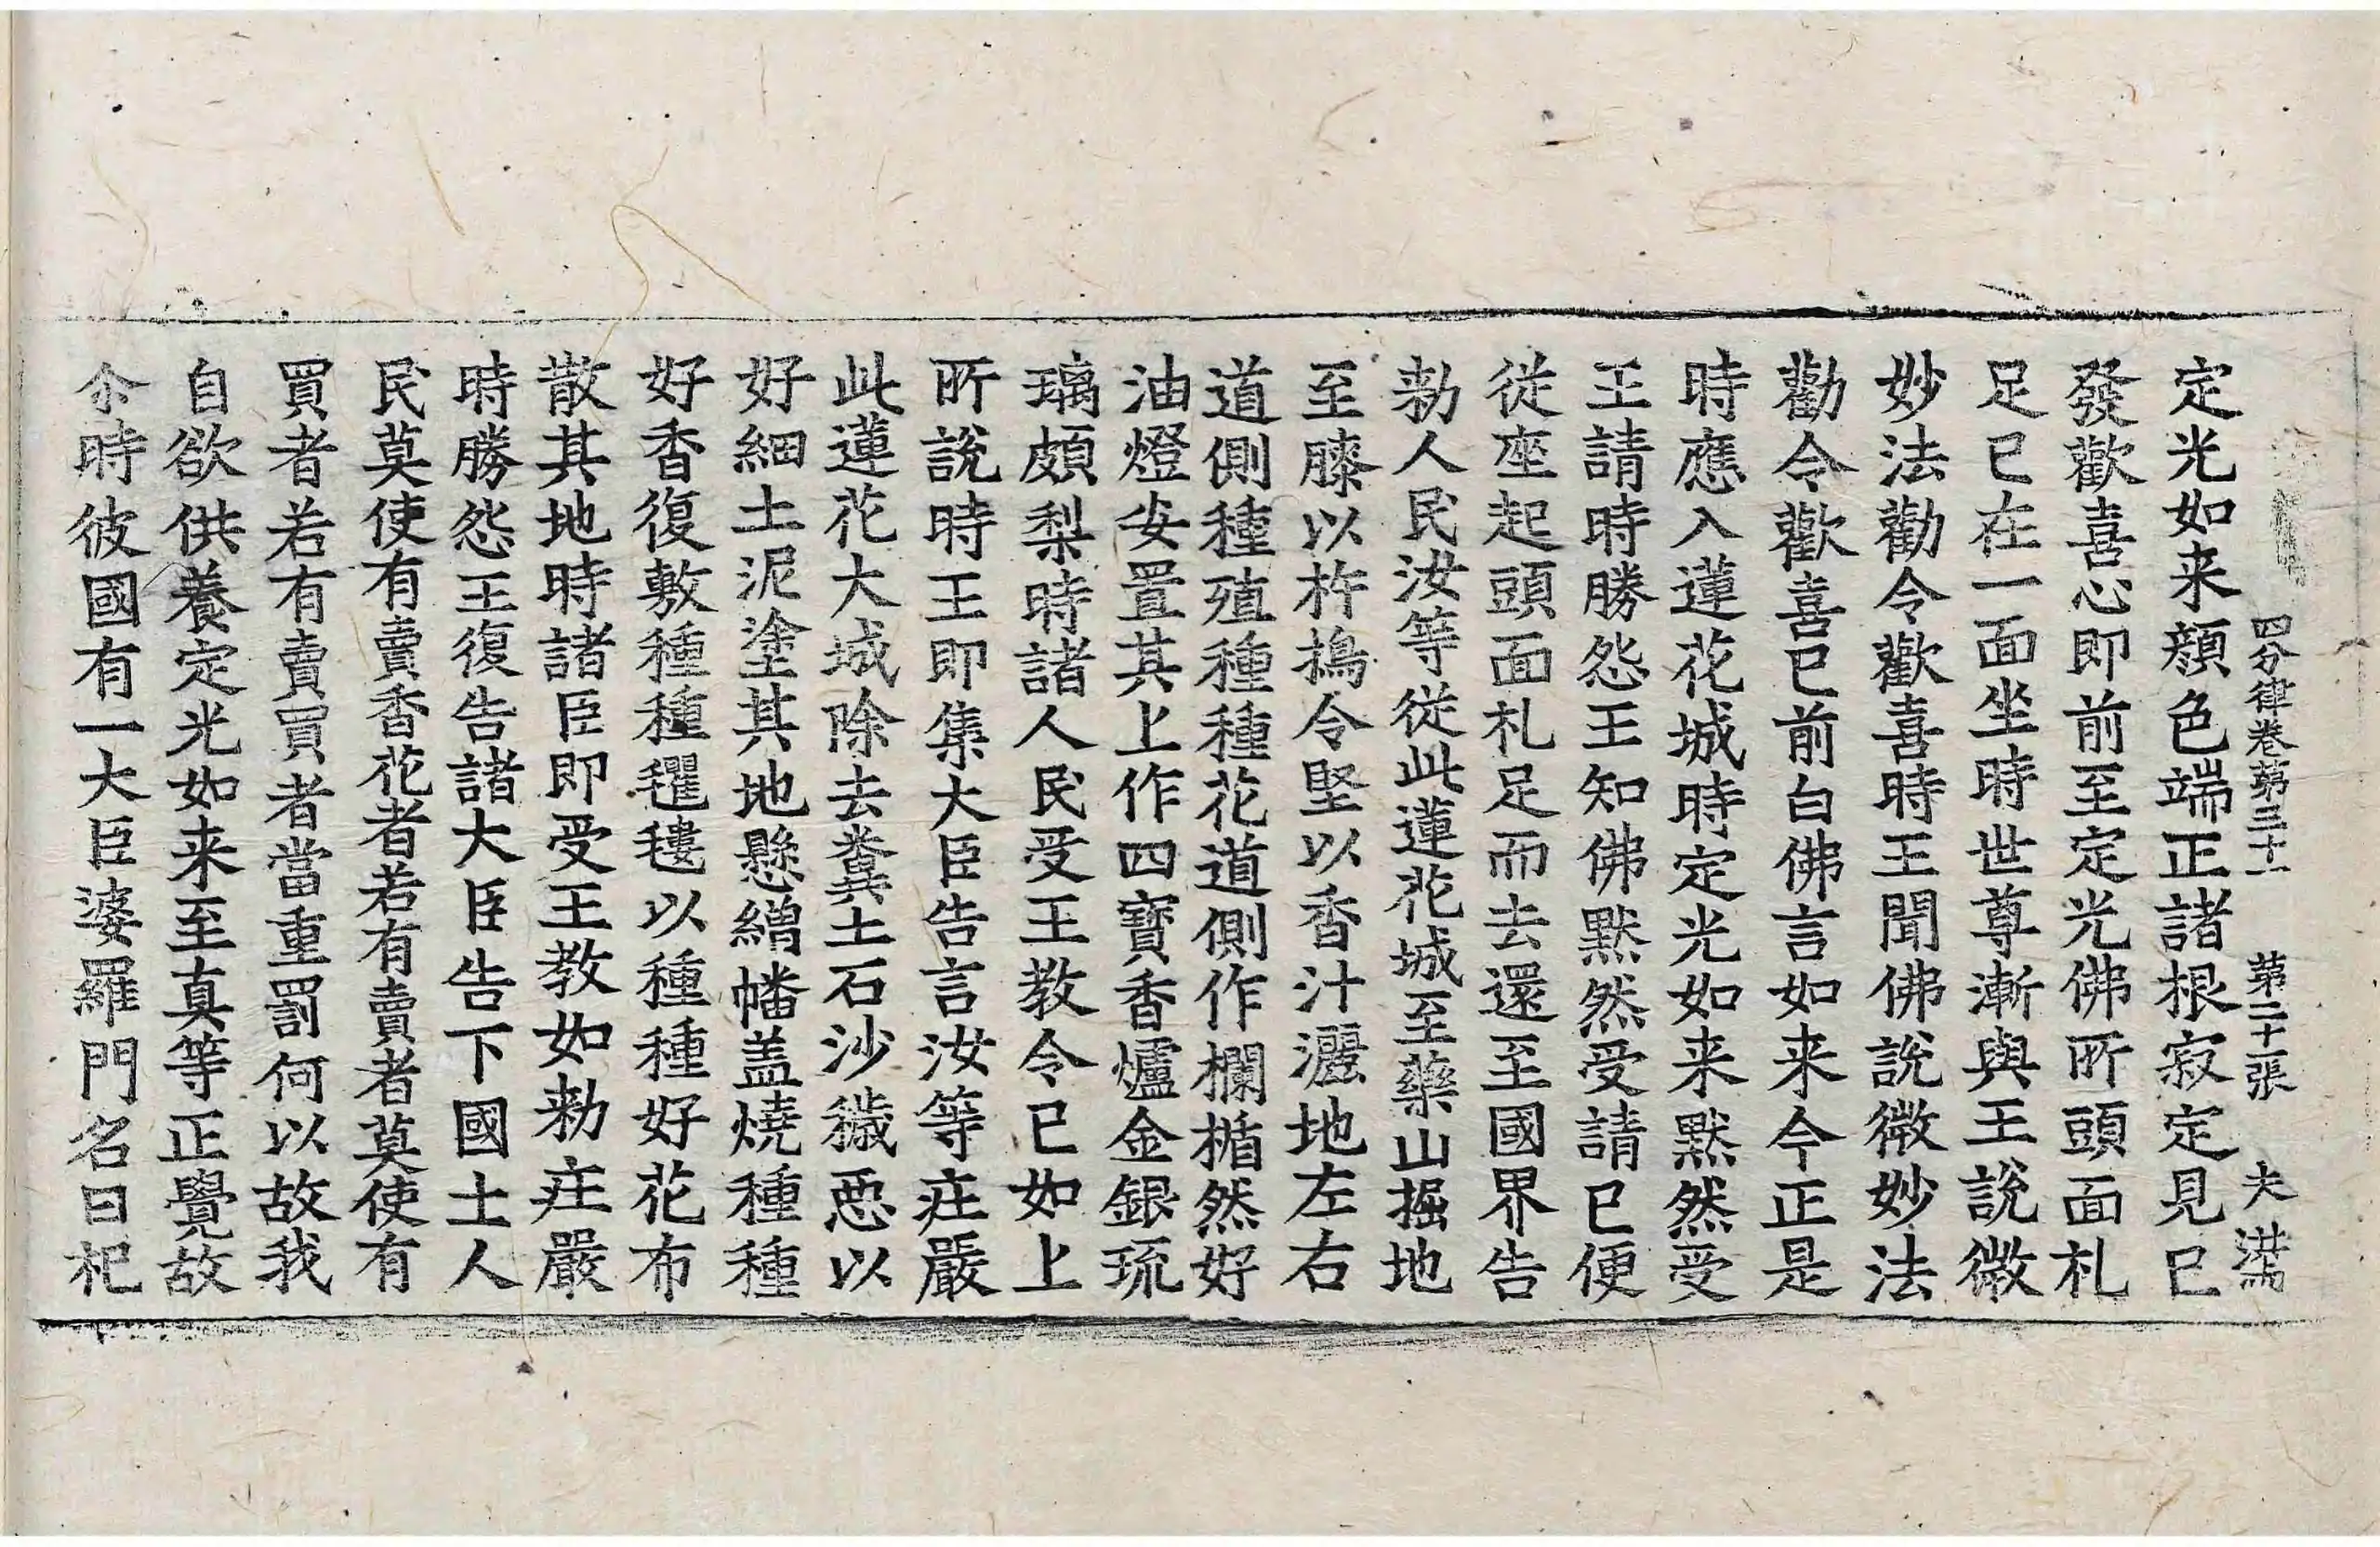 四分律卷第三十一 第二十張 夫
定光如来顔色端正諸根寂定見已
發歡喜心即前至定光佛所頭面礼
足已在一面坐時世尊漸與王說微
妙法勸令歡喜時王聞佛說微妙法
勸令歡喜已前白佛言如来今正是
時應入蓮花城時定光如来黙然受
王請時勝怨王知佛黙然受請已便
従座起頭面礼足而去還至國界告
勑人民汝等従此蓮花城至藥山掘地
至膝以杵擣令堅以香汁灑地左右
道側種殖種種花道側作欄楯然好
油燈安置其上作四寶香爐金銀琉
璃頗梨時諸人民受王教令已如上
所說時王即集大臣告言汝等庄嚴
此蓮花大城除去糞土石沙穢惡以
好細土泥塗其地懸繒幡盖燒種種
好香復敷種種氍毹以種種好花布
散其地時諸臣即受王教如勑庄嚴
時勝怨王復告諸大臣告下國土人
民莫使有賣香花者若有賣者莫使有
買者若有賣買者當重罰何以故我
自欲供養定光如来至真等正覺故
尒時彼國有一大臣婆羅門名曰祀